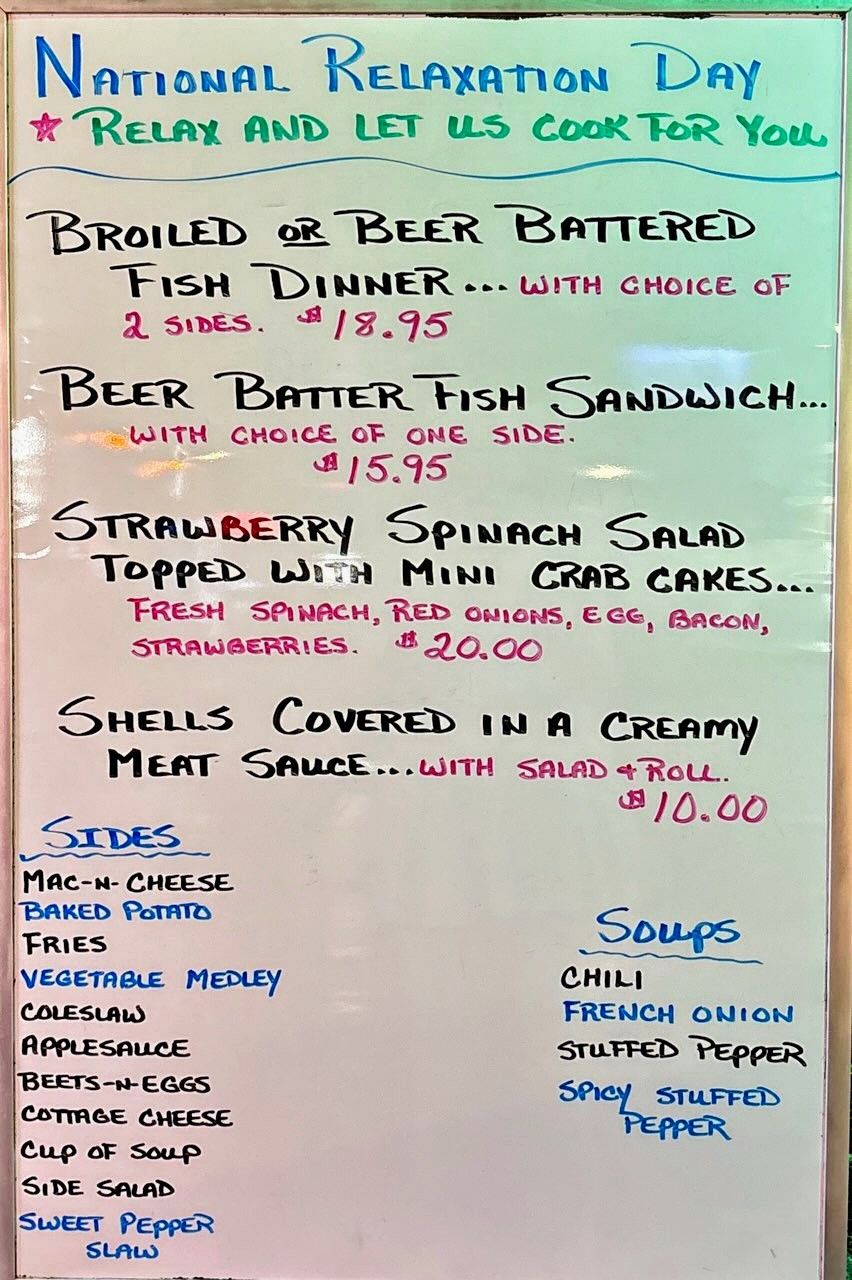 NATIONAL RELAXATION DAY
★ RELAX AND LET US COOK FOR YOU
BROILED OR BEER BATTERED
FISH DINNER... WITH CHOICE OF
2 SIDES. $18.95
BEER BATTER FISH SANDWICH...
WITH CHOICE OF ONE SIDE.
$15.95
STRAWBERRY SPINACH SALAD
TOPPED WITH MINI CRAB CAKES...
FRESH SPINACH, RED ONIONS, EGG, BACON,
STRAWBERRIES. $20.00
SHELLS COVERED IN A CREAMY
MEAT SAUCE... WITH SALAD + ROLL.
$10.00
SIDES
MAC-N-CHEESE
BAKED POTATO
FRIES
VEGETABLE MEDLEY
COLESLAW
APPLESAUCE
BEETS-N-EGGS
COTTAGE CHEESE
CUP OF SOUP
SIDE SALAD
SWEET PEPPER
SLAW
SOUPS
CHILI
FRENCH ONION
STUFFED PEPPER
SPICY STUFFED
PEPPER